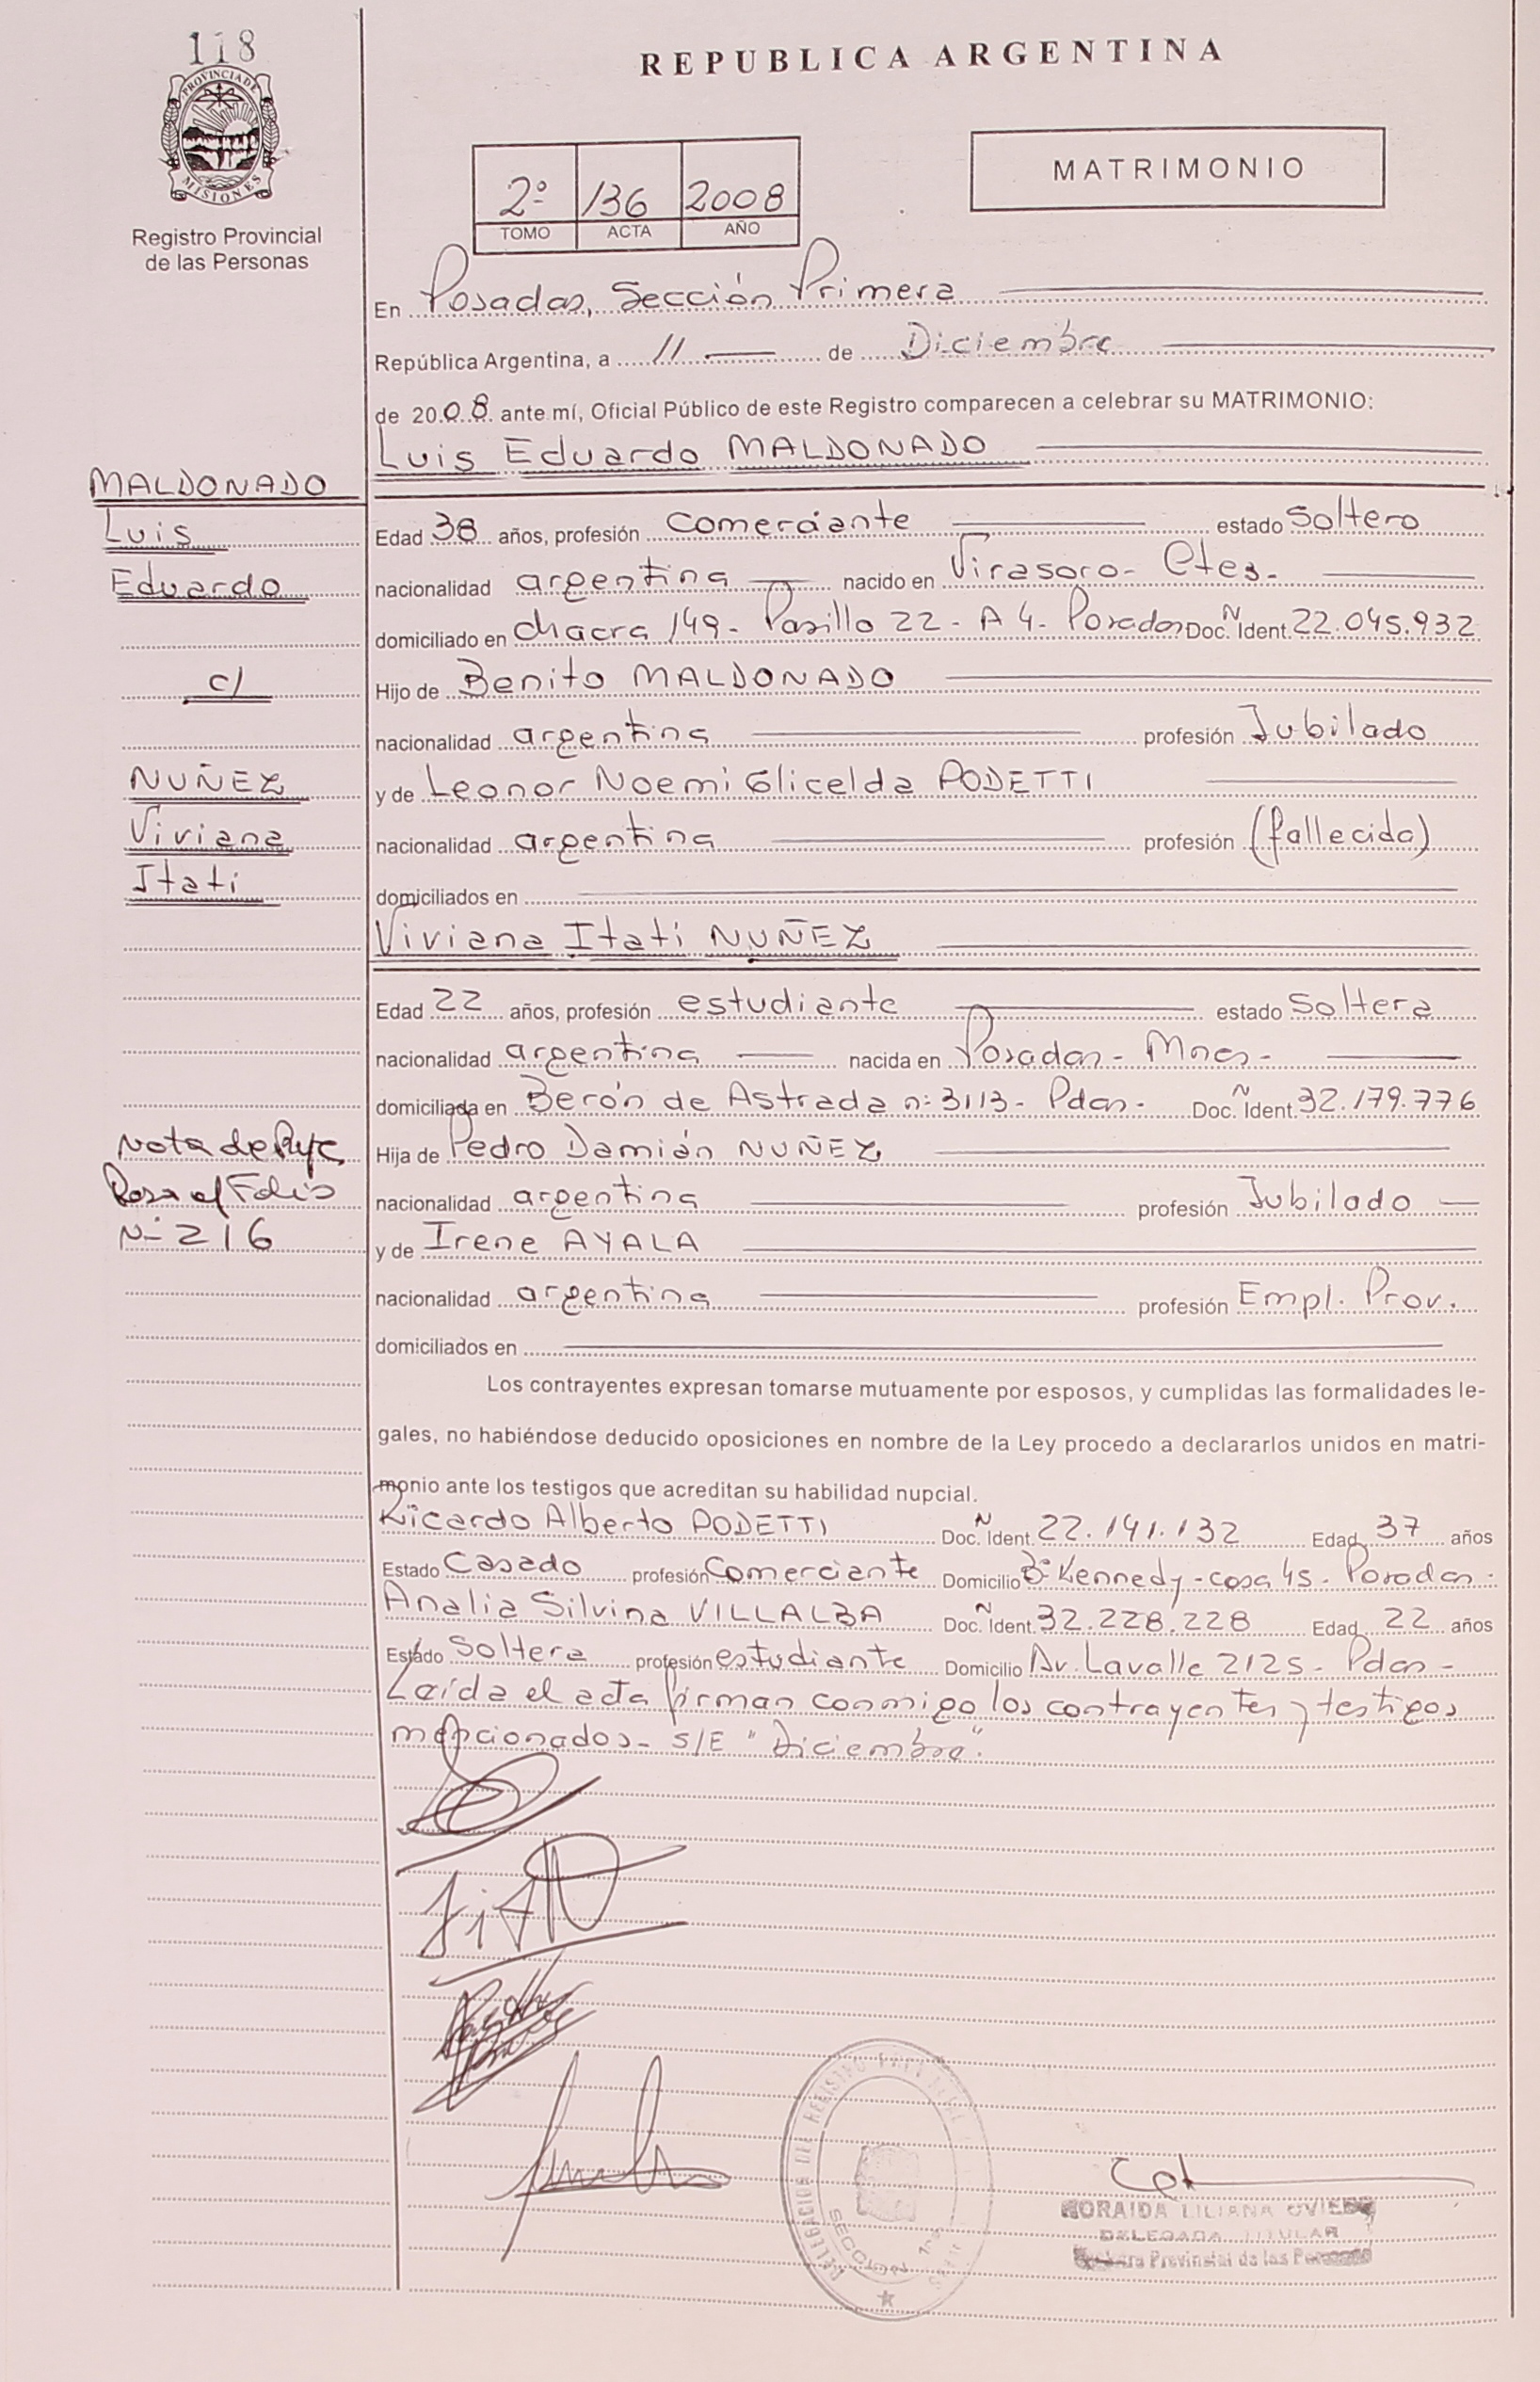 118
PROVINCIA DE
MISIONES
Registro Provincial
de las Personas
REPUBLICA ARGENTINA
2º 136 2008
TOMO ACTA AÑO
MATRIMONIO
En Posadas, Sección Primera
República Argentina, a 11 de Diciembre
de 2008 ante mí, Oficial Público de este Registro comparecen a celebrar su MATRIMONIO:
Luis Eduardo MALDONADO
MALDONADO
Luis
Eduardo
c/
NUÑEZ
Viviana
Itati
Edad 38 años, profesión Comerciante estado Soltero
nacionalidad argentina nacido en Virasoro - Ctes.
domiciliado en Chacra 149 - Pasillo 22 - A 4 - Posadas Doc. Ident. 22.045.932
Hijo de Benito MALDONADO
nacionalidad argentina profesión Jubilado
y de Leonor Noemi Glicelda PODETTI
nacionalidad argentina profesión (fallecida)
domiciliados en
Viviana Itati NUÑEZ
Edad 22 años, profesión estudiante estado Soltera
nacionalidad argentina nacida en Posadas - Mnes -
domiciliada en Berón de Astrada nº 3113 - Pdas - Doc. Ident. 32.179.776
Hija de Pedro Damián NUÑEZ
nacionalidad argentina profesión Jubilado
y de Irene AYALA
nacionalidad argentina profesión Empl. Prov.
domiciliados en
Nota de
Pasa al Folio
Nº 216
Los contrayentes expresan tomarse mutuamente por esposos, y cumplidas las formalidades le-
gales, no habiéndose deducido oposiciones en nombre de la Ley procedo a declararlos unidos en matri-
monio ante los testigos que acreditan su habilidad nupcial.
Ricardo Alberto PODETTI Doc. Ident. 22.141.132 Edad 37 años
Estado Casado profesión Comerciante Domicilio Bº Kennedy - casa 45 - Posadas -
Analia Silvina VILLALBA Doc. Ident. 32.228.228 Edad 22 años
Estado Soltera profesión estudiante Domicilio Av. Lavalle 2125 - Pdas -
Leída el acta firman conmigo los contrayentes y testigos
mencionados - S/E "Diciembre".
DELEGACION DEL REGISTRO
SECCION 1
LILIANA OVIEDO
DELEGADA TITULAR
Provincial de las Personas